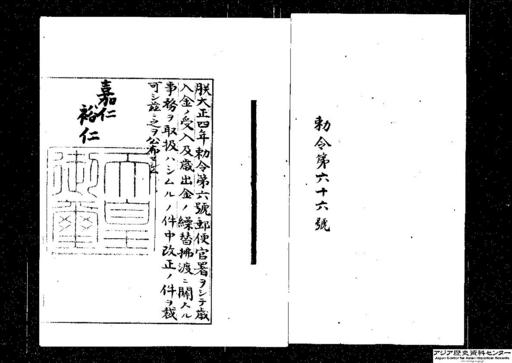 勅令第六十六號
朕大正四年勅令第六號郵便官署ヲシテ歳
入金ノ受入及歳出金ノ繰替拂渡ニ關スル
事務ヲ取扱ハシムルノ件中改正ノ件ヲ裁
可シ茲ニ之ヲ公布セシム
嘉仁
裕仁
天皇
御璽
アジア歴史資料センター
Japan Center for Asian Historical Records